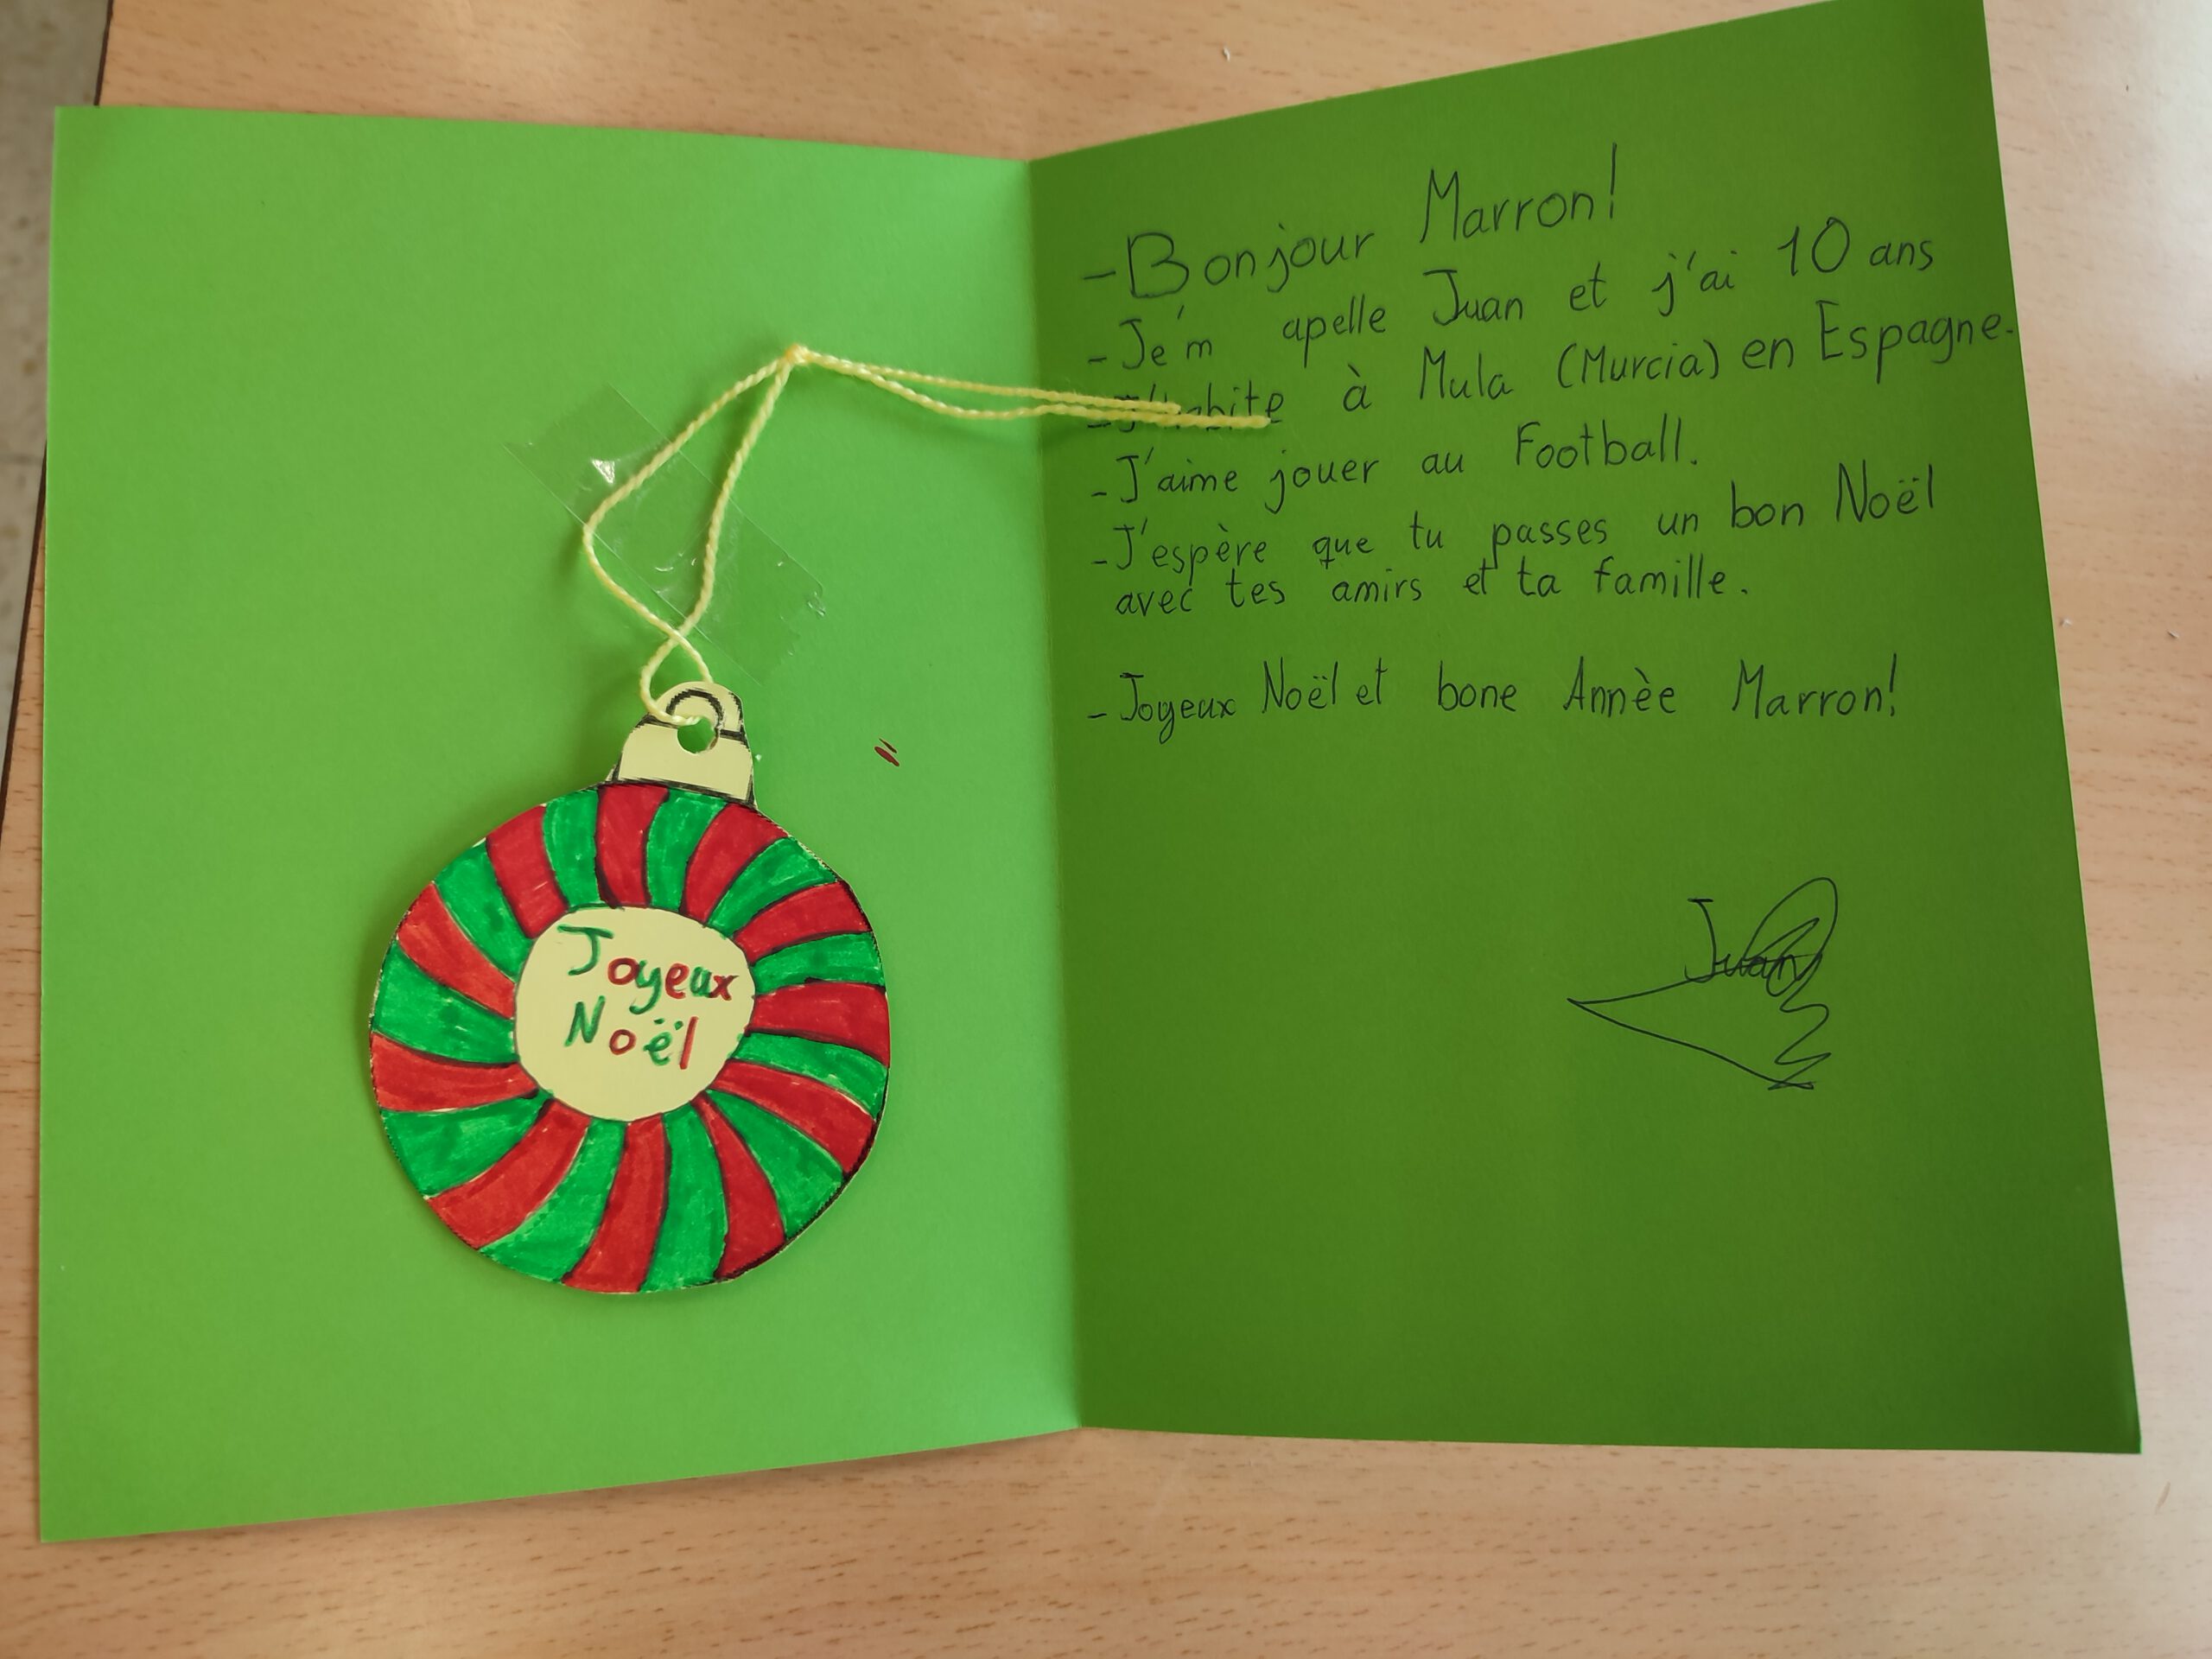 Joyeux
Noël
-Bonjour Marron!
-Je'm apelle Juan et j'ai 10 ans
-J'habite à Mula (Murcia) en Espagne.
-J'aime jouer au Football.
-J'espère que tu passes un bon Noël
avec tes amirs et ta famille.
-Joyeux Noël et bone Annèe Marron!
Juan